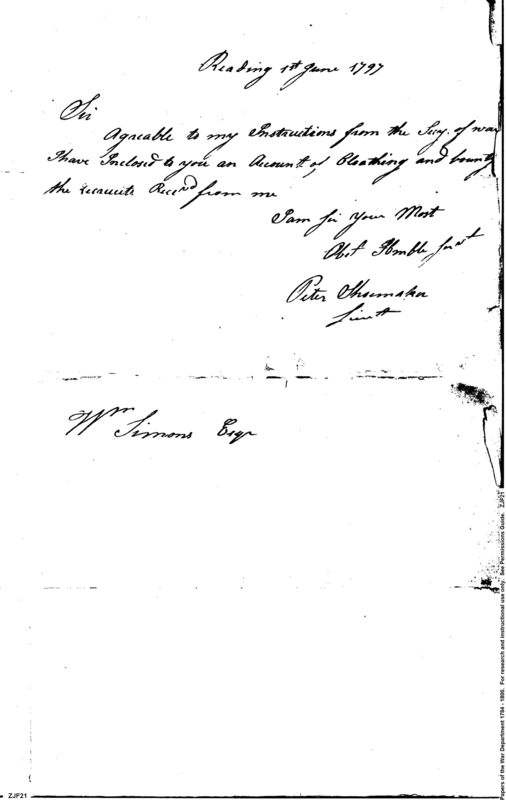 Reading 1st June 1797
Sir
Agreable to my Instructions from the Secy. of war
I have Inclosed to you an Account of Cloathing and bounty
the recruits Receid from me
I am Sir your Most
Obet Hmble Servt
Peter Shoemaker
Lieutt
Wm Simons Esqr
Papers of the War Department 1784 - 1800. For research and instructional use only. See Permissions Guide. ZJF21
ZJF21